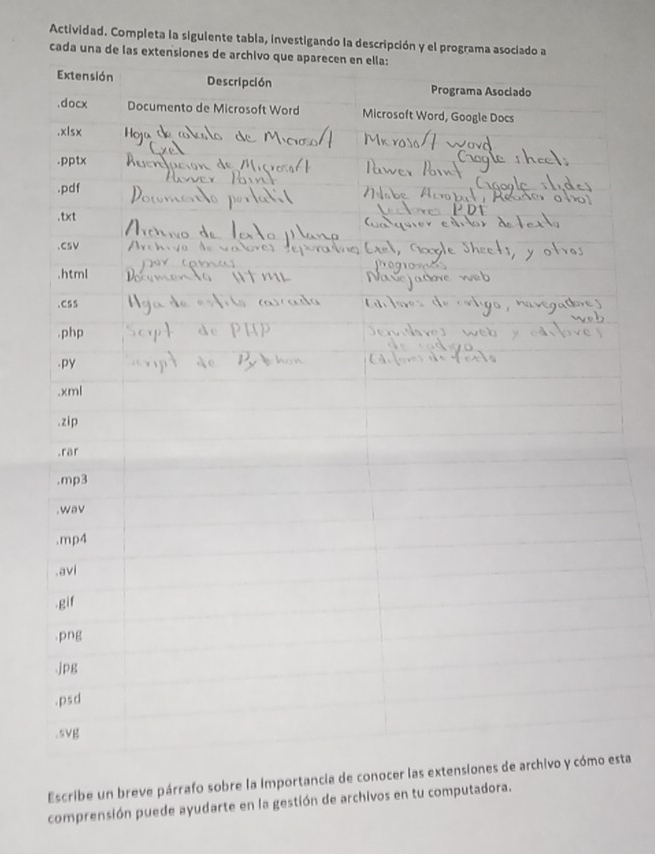 Actividad. Completa la siguiente tabla, investigando la descripción y el programa asociado a
cada una de las extensiones de archivo que aparecen en ella:
Extensión Descripción Programa Asociado
.docx Documento de Microsoft Word Microsoft Word, Google Docs
.xlsx Hoja de calculo de Microsoft Microsoft word
Exel Google sheels
.pptx de Microsoft Power Point
Power Point Google slides
.pdf Documento portatil Adobe Acrobat, Reador otros
lectores PDF
.txt Archivo de texto plano Cualquier editor de texto
.csv Archivo de valores separados Exel, Google Sheets, y otros
por comas programas
.html Documento HTML Navejadore web
.css Hga de estilo cascada Editores de codigo, navegadores
web
.php Script de PHP Servidores web y editores
de codigo
.py Script de Python Editores de texto
.xml
.zip
.rar
.mp3
.wav
.mp4
.avi
.gif
.png
.jpg
.psd
.svg
Escribe un breve párrafo sobre la importancia de conocer las extensiones de archivo y cómo esta
comprensión puede ayudarte en la gestión de archivos en tu computadora.